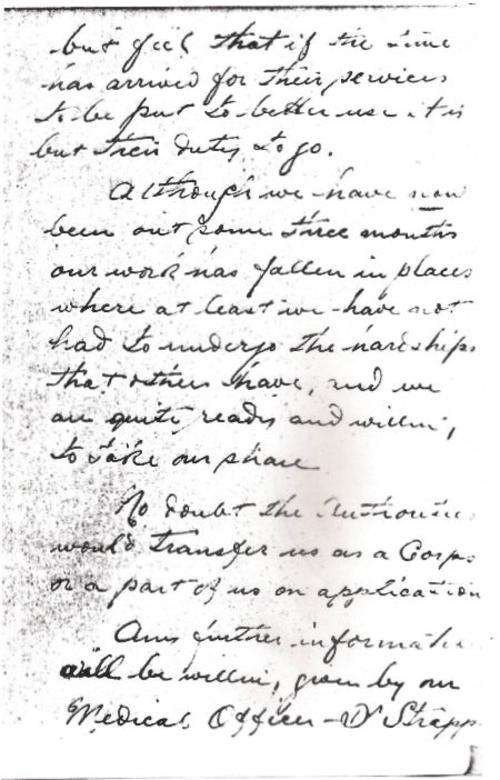 but feel that if the time
has arrived for their services
to be put to better use it is
but their duty to go.
Although we have now
been out some three months
our work has fallen in places
where at least we have not
had to undergo the hardships
that others have, and we
are quite ready and willing
to take our share
No doubt the Authorities
would transfer us as a Corps
or a part of us on application
Any further information
will be willing given by our
Medical Officer - Dr Strapp